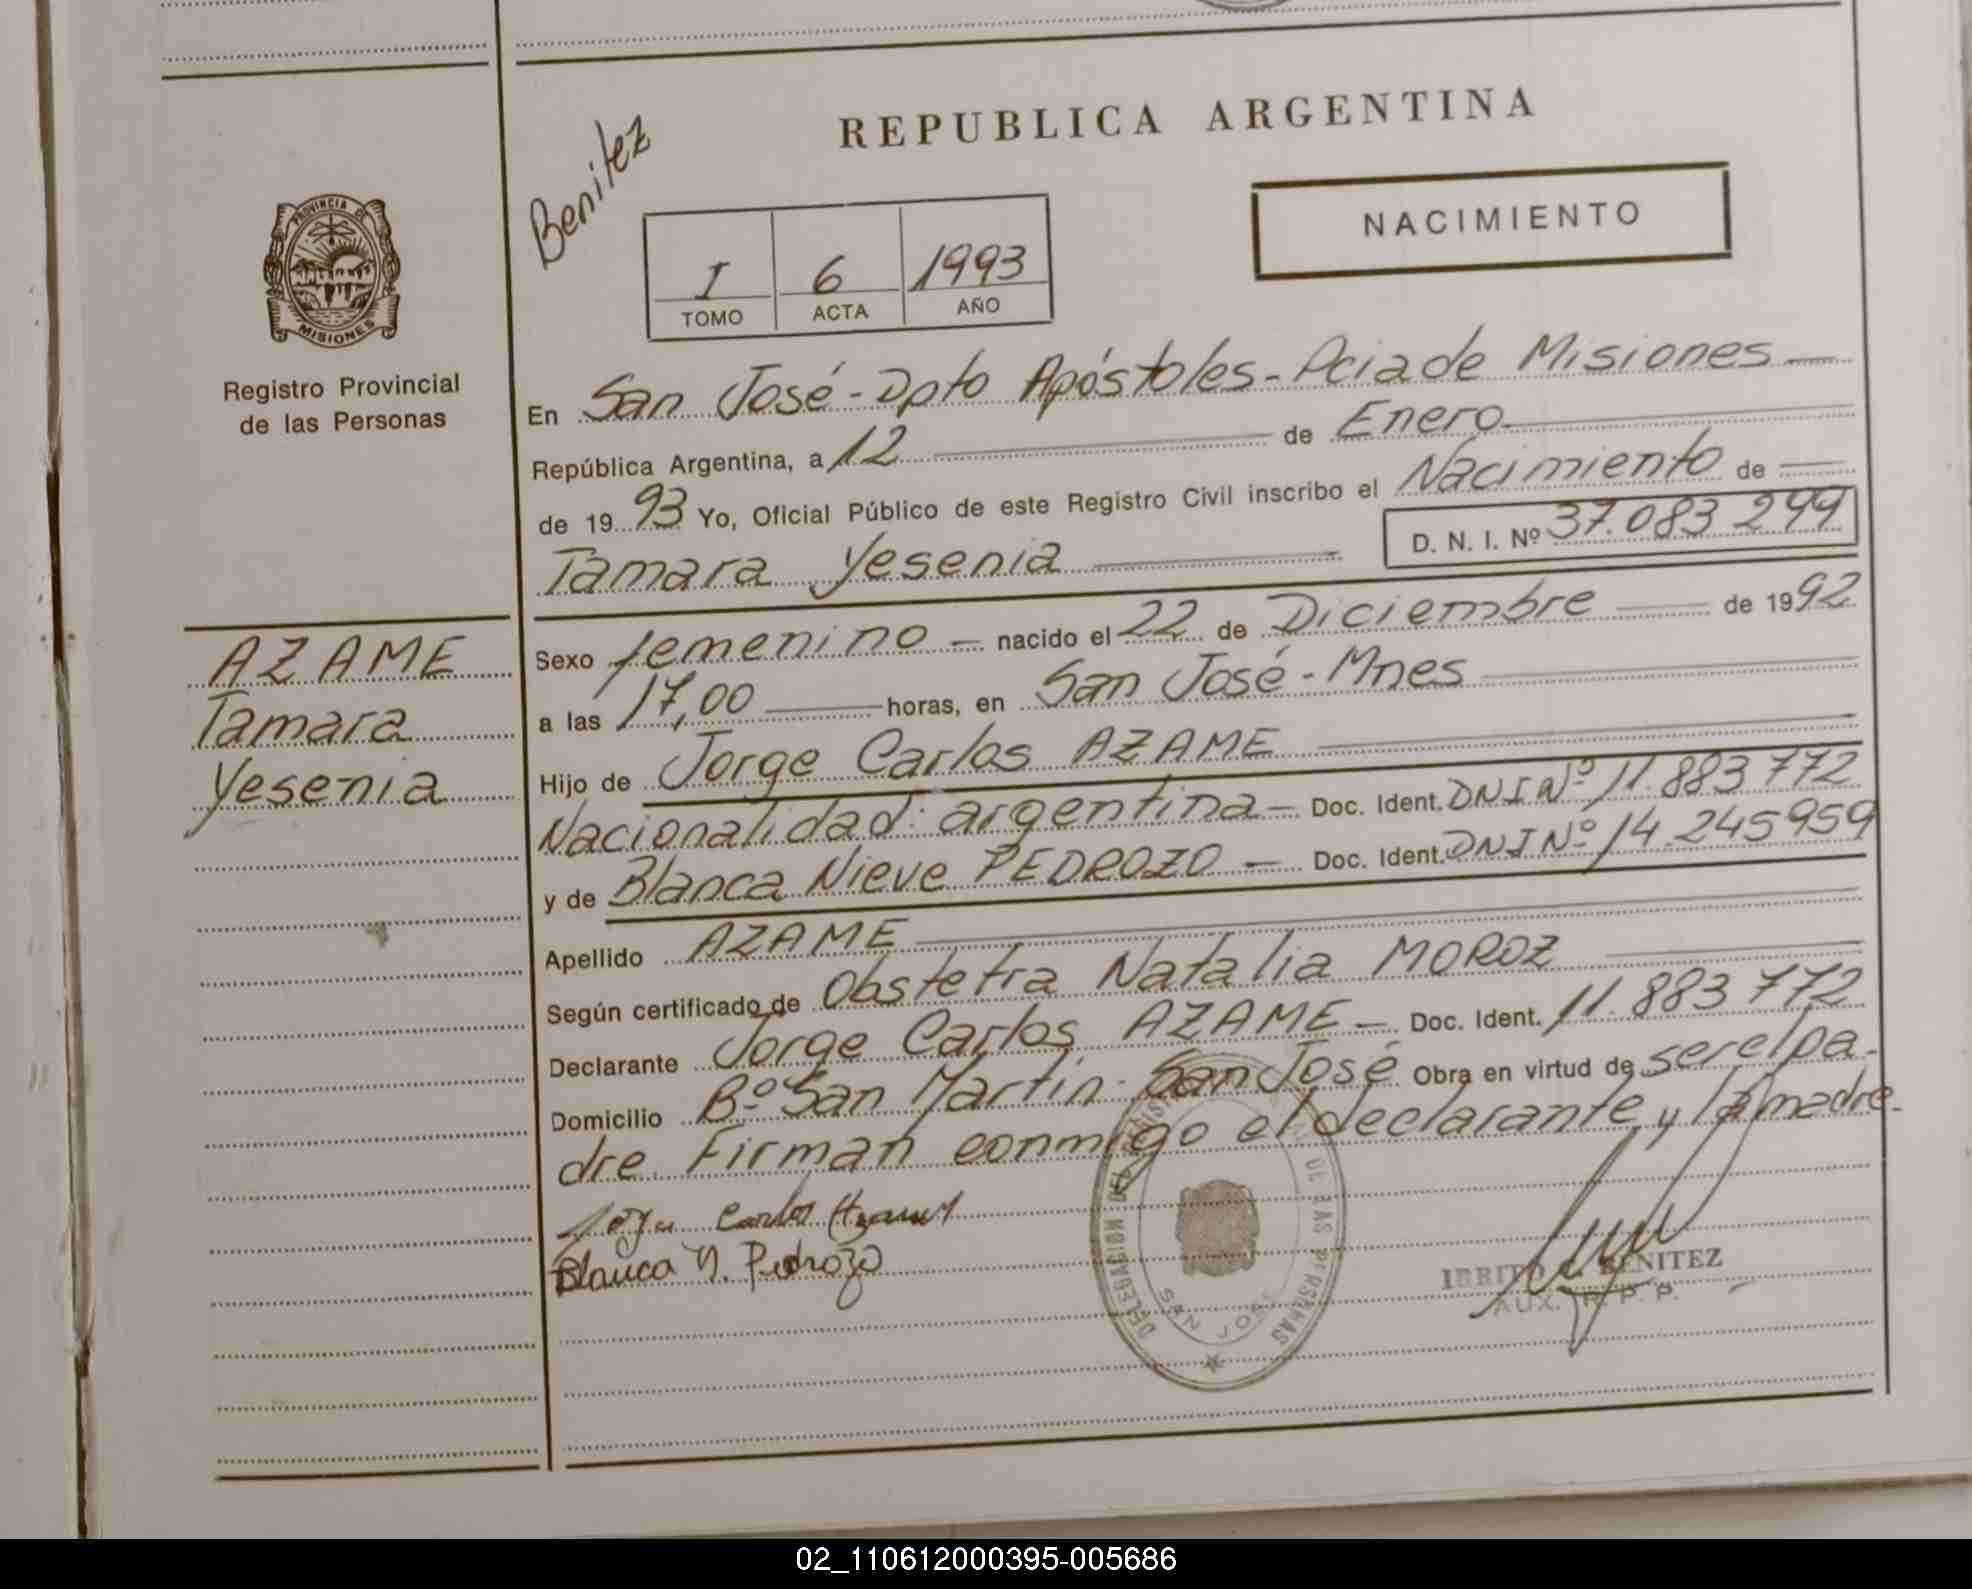 REPUBLICA ARGENTINA
Benitez
NACIMIENTO
I 6 1993
TOMO ACTA AÑO
PROVINCIA DE
MISIONES
Registro Provincial
de las Personas
En San José - Dpto Apóstoles - Pcia de Misiones
República Argentina, a 12 de Enero
de 19 93 Yo, Oficial Público de este Registro Civil inscribo el Nacimiento de
Tamara Yesenia D. N. I. Nº 37.083 299
AZAME
Tamara
Yesenia
Sexo femenino nacido el 22 de Diciembre de 1992
a las 17,00 horas, en San José - Mnes
Hijo de Jorge Carlos AZAME
Nacionalidad: argentina - Doc. Ident. DNI Nº 11.883 772
y de Blanca Nieve PEDROZO - Doc. Ident. DNI Nº 14.245959
Apellido AZAME
Según certificado de Obstetra Natalia MOROZ
Declarante Jorge Carlos AZAME - Doc. Ident. 11.883 772
Domicilio Bº San Martín - San José Obra en virtud de ser el pa-
dre. Firman conmigo el declarante y la madre.
Jorge Carlos Azame
Blanca N. Pedrozo
DELEGACION DEL REGISTRO DE LAS PERSONAS
SAN JOSE
BENITEZ
AUX. R. P. P.
02_110612000395-005686